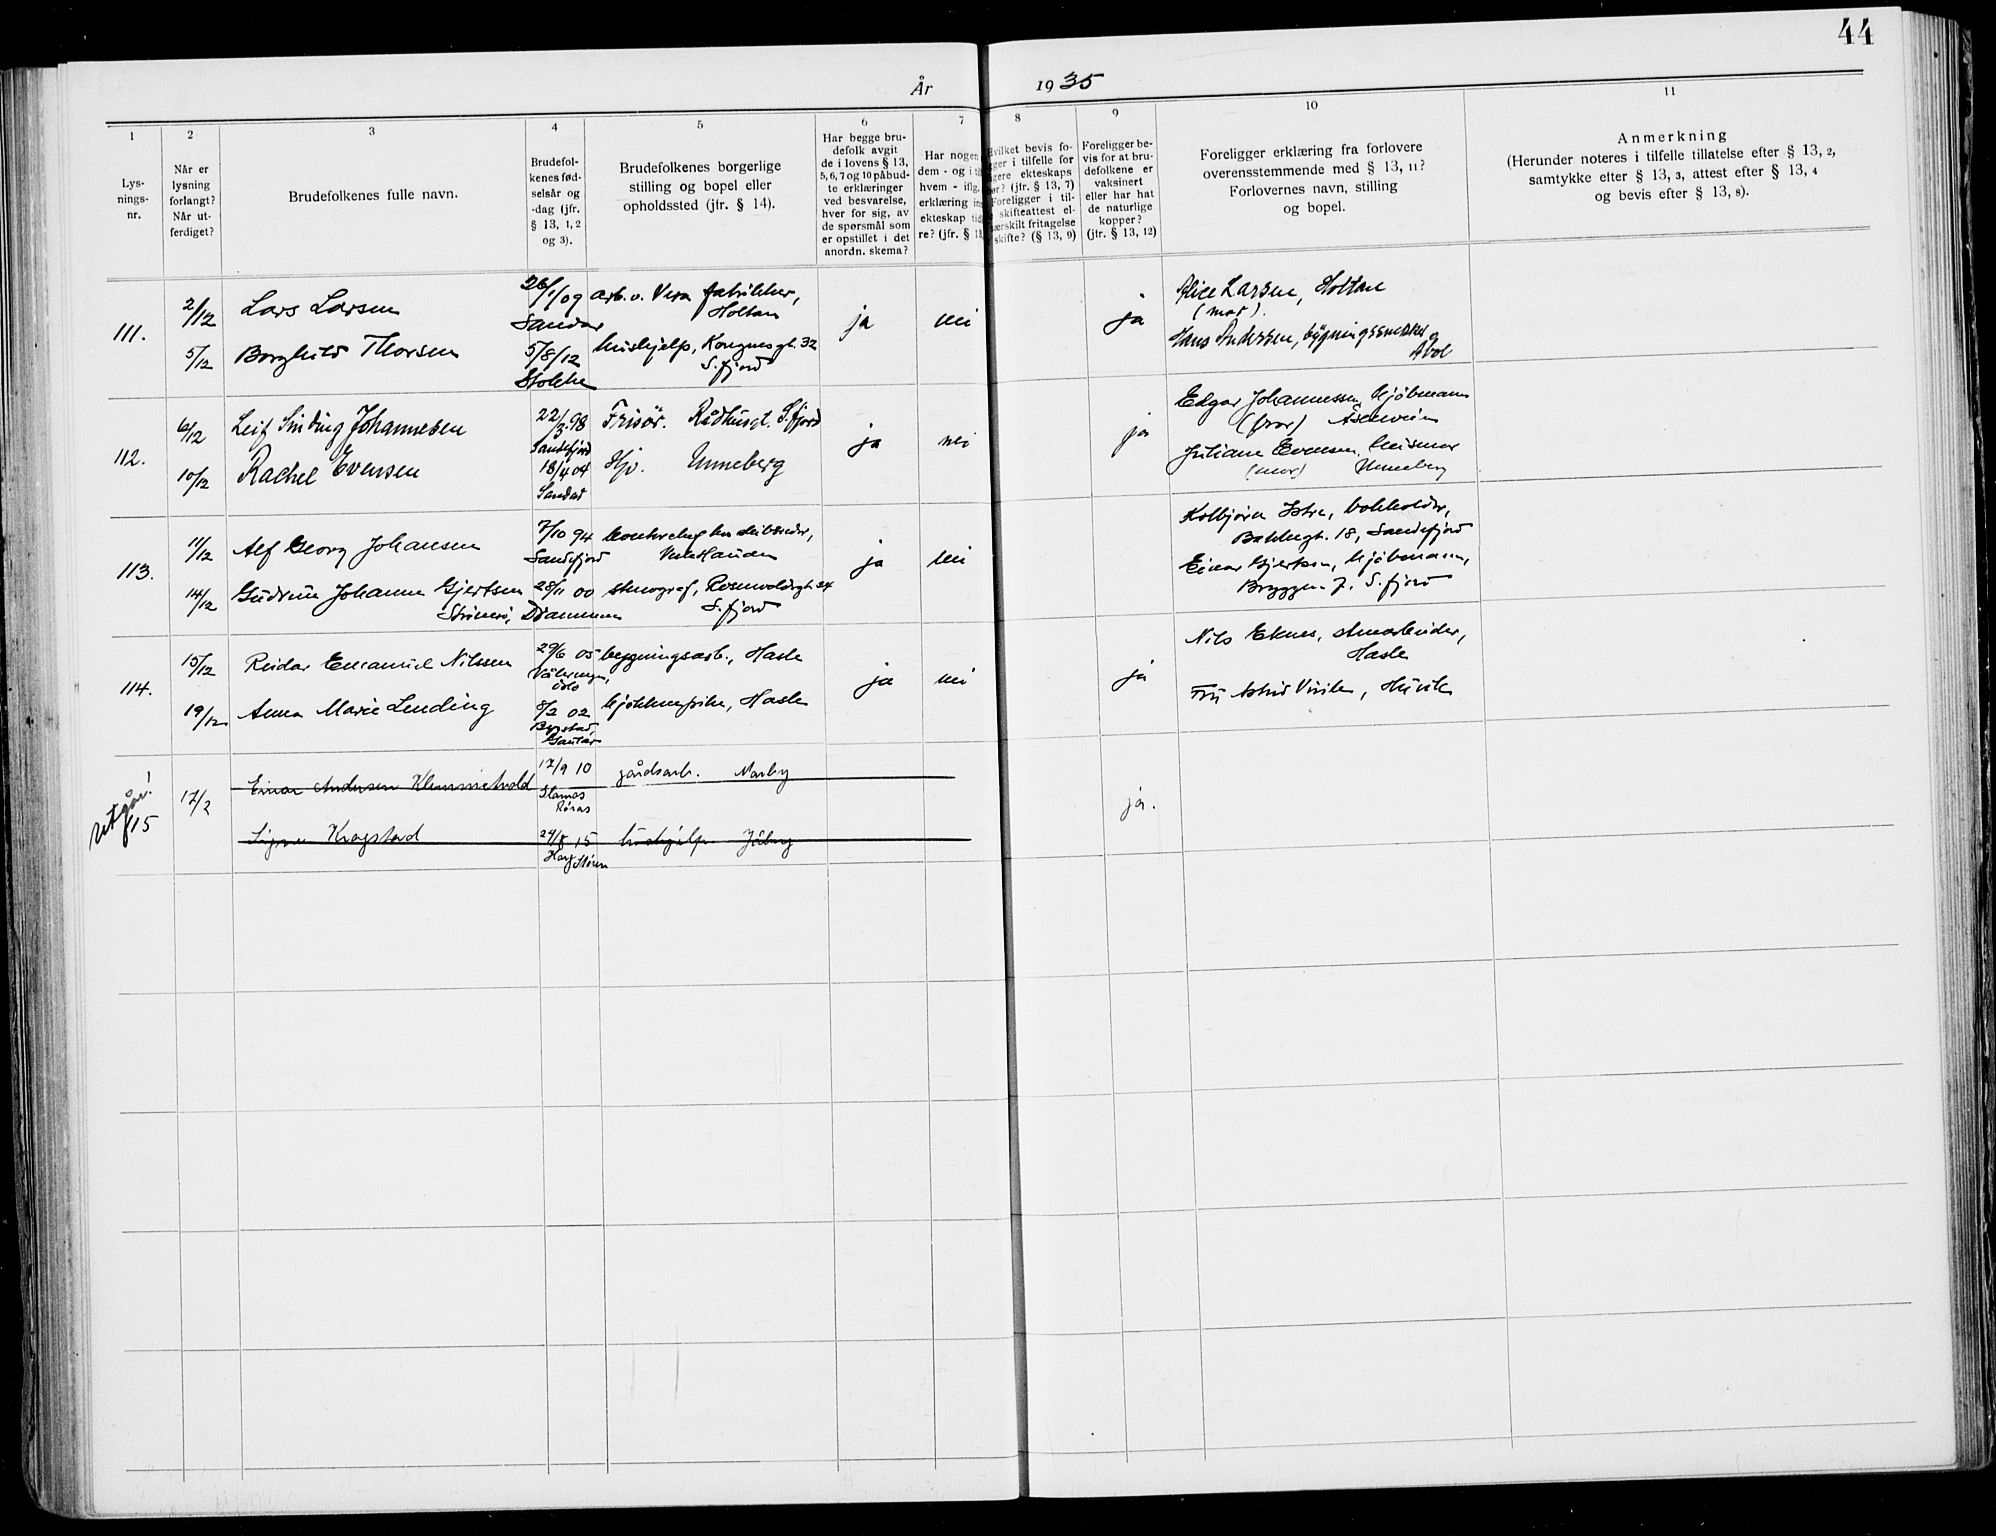 44
År 1935
1 2 3 4 5 6 7 8 9 10 11
Lys-
nings-
nr.
Når er
lysning
forlangt?
Når ut-
ferdiget?
Brudefolkenes fulle navn.
Brudefol-
kenes fød-
selsår og
-dag (jfr.
§ 13, 1, 2
og 3).
Brudefolkenes borgerlige
stilling og bopel eller
opholdssted (jfr. § 14).
Har begge bru-
defolk avgit
de i lovens § 13,
5, 6, 7 og 10 påbud-
te erklæringer
ved besvarelse,
hver for sig, av
de spørsmål som
er opstillet i det
anordn. skema?
Har nogen
dem - og i
hvem - iflg.
erklæring
ekteskap
re? (jfr. § 13
Hvilket bevis fo-
i tilfelle for
ekteskaps
(jfr. § 13, 7)
Foreligger i til-
skifteattest el-
fritagelse
skifte? (§ 13, 9)
Foreligger be-
vis for at bru-
defolkene er
vaksinert
eller har hat
de naturlige
kopper?
(jfr. § 13, 12)
Foreligger erklæring fra forlovere
overensstemmende med § 13, 11?
Forlovernes navn, stilling
og bopel.
Anmerkning
(Herunder noteres i tilfelle tillatelse efter § 13, 2,
samtykke efter § 13, 3, attest efter § 13, 4
og bevis efter § 13, 8).
111.
2/12
5/12
Lars Larsen
Borghild Thorsen
26/1 09
Sandar
5/8/12
Stokke
arb. v. Vera fabrikker,
Holtan
hushjelp, Kongensgt. 32
S.fjord
ja
nei
ja
Alice Larsen, Holtan
(mor).
Hans Andersen, bygningssnekker
112.
6/12
10/12
Leif Sinding Johannesen
Rachel Evensen
22/3 98
Sandefjord
18/4 04
Sandar
Frisör. Rådhusgt. S.fjord
Hjv. Unneberg
ja
nei
ja
Edgar Johannessen, kjøbmann
(bror)
Juliane Evensen, husmor
(mor) Unneberg
113.
11/12
14/12
Alf Georg Johansen
Gudrun Johanne Gjertsen
7/10 94
Sandefjord
28/11 00
Strømsø, Drammen
stenograf, Rosenvoldsgt. 34
S.fjord
ja
nei
Kolbjørn Istre, bokholder,
18, Sandefjord
Einar Gjertsen, kjøbmann,
Bryggen 7. S.fjord
114.
15/12
19/12
Reidar Emanuel Nilssen
Anna Marie Lending
29/6 05
Vålerengen,
Oslo
8/2 02
Bygstad,
Gaular
bygningsarb., Hasle
kjøkkenpike, Hasle
ja
nei
ja
Nils Eknes,
Hasle
Fru Astrid Virik, Huvik
utgår!
115
17/2
Einar Andersen Klemmetvold
Signe Krogstad
17/9 10
Røros
24/8 15
Støren
gårdsarb.
hushjelp
ja.